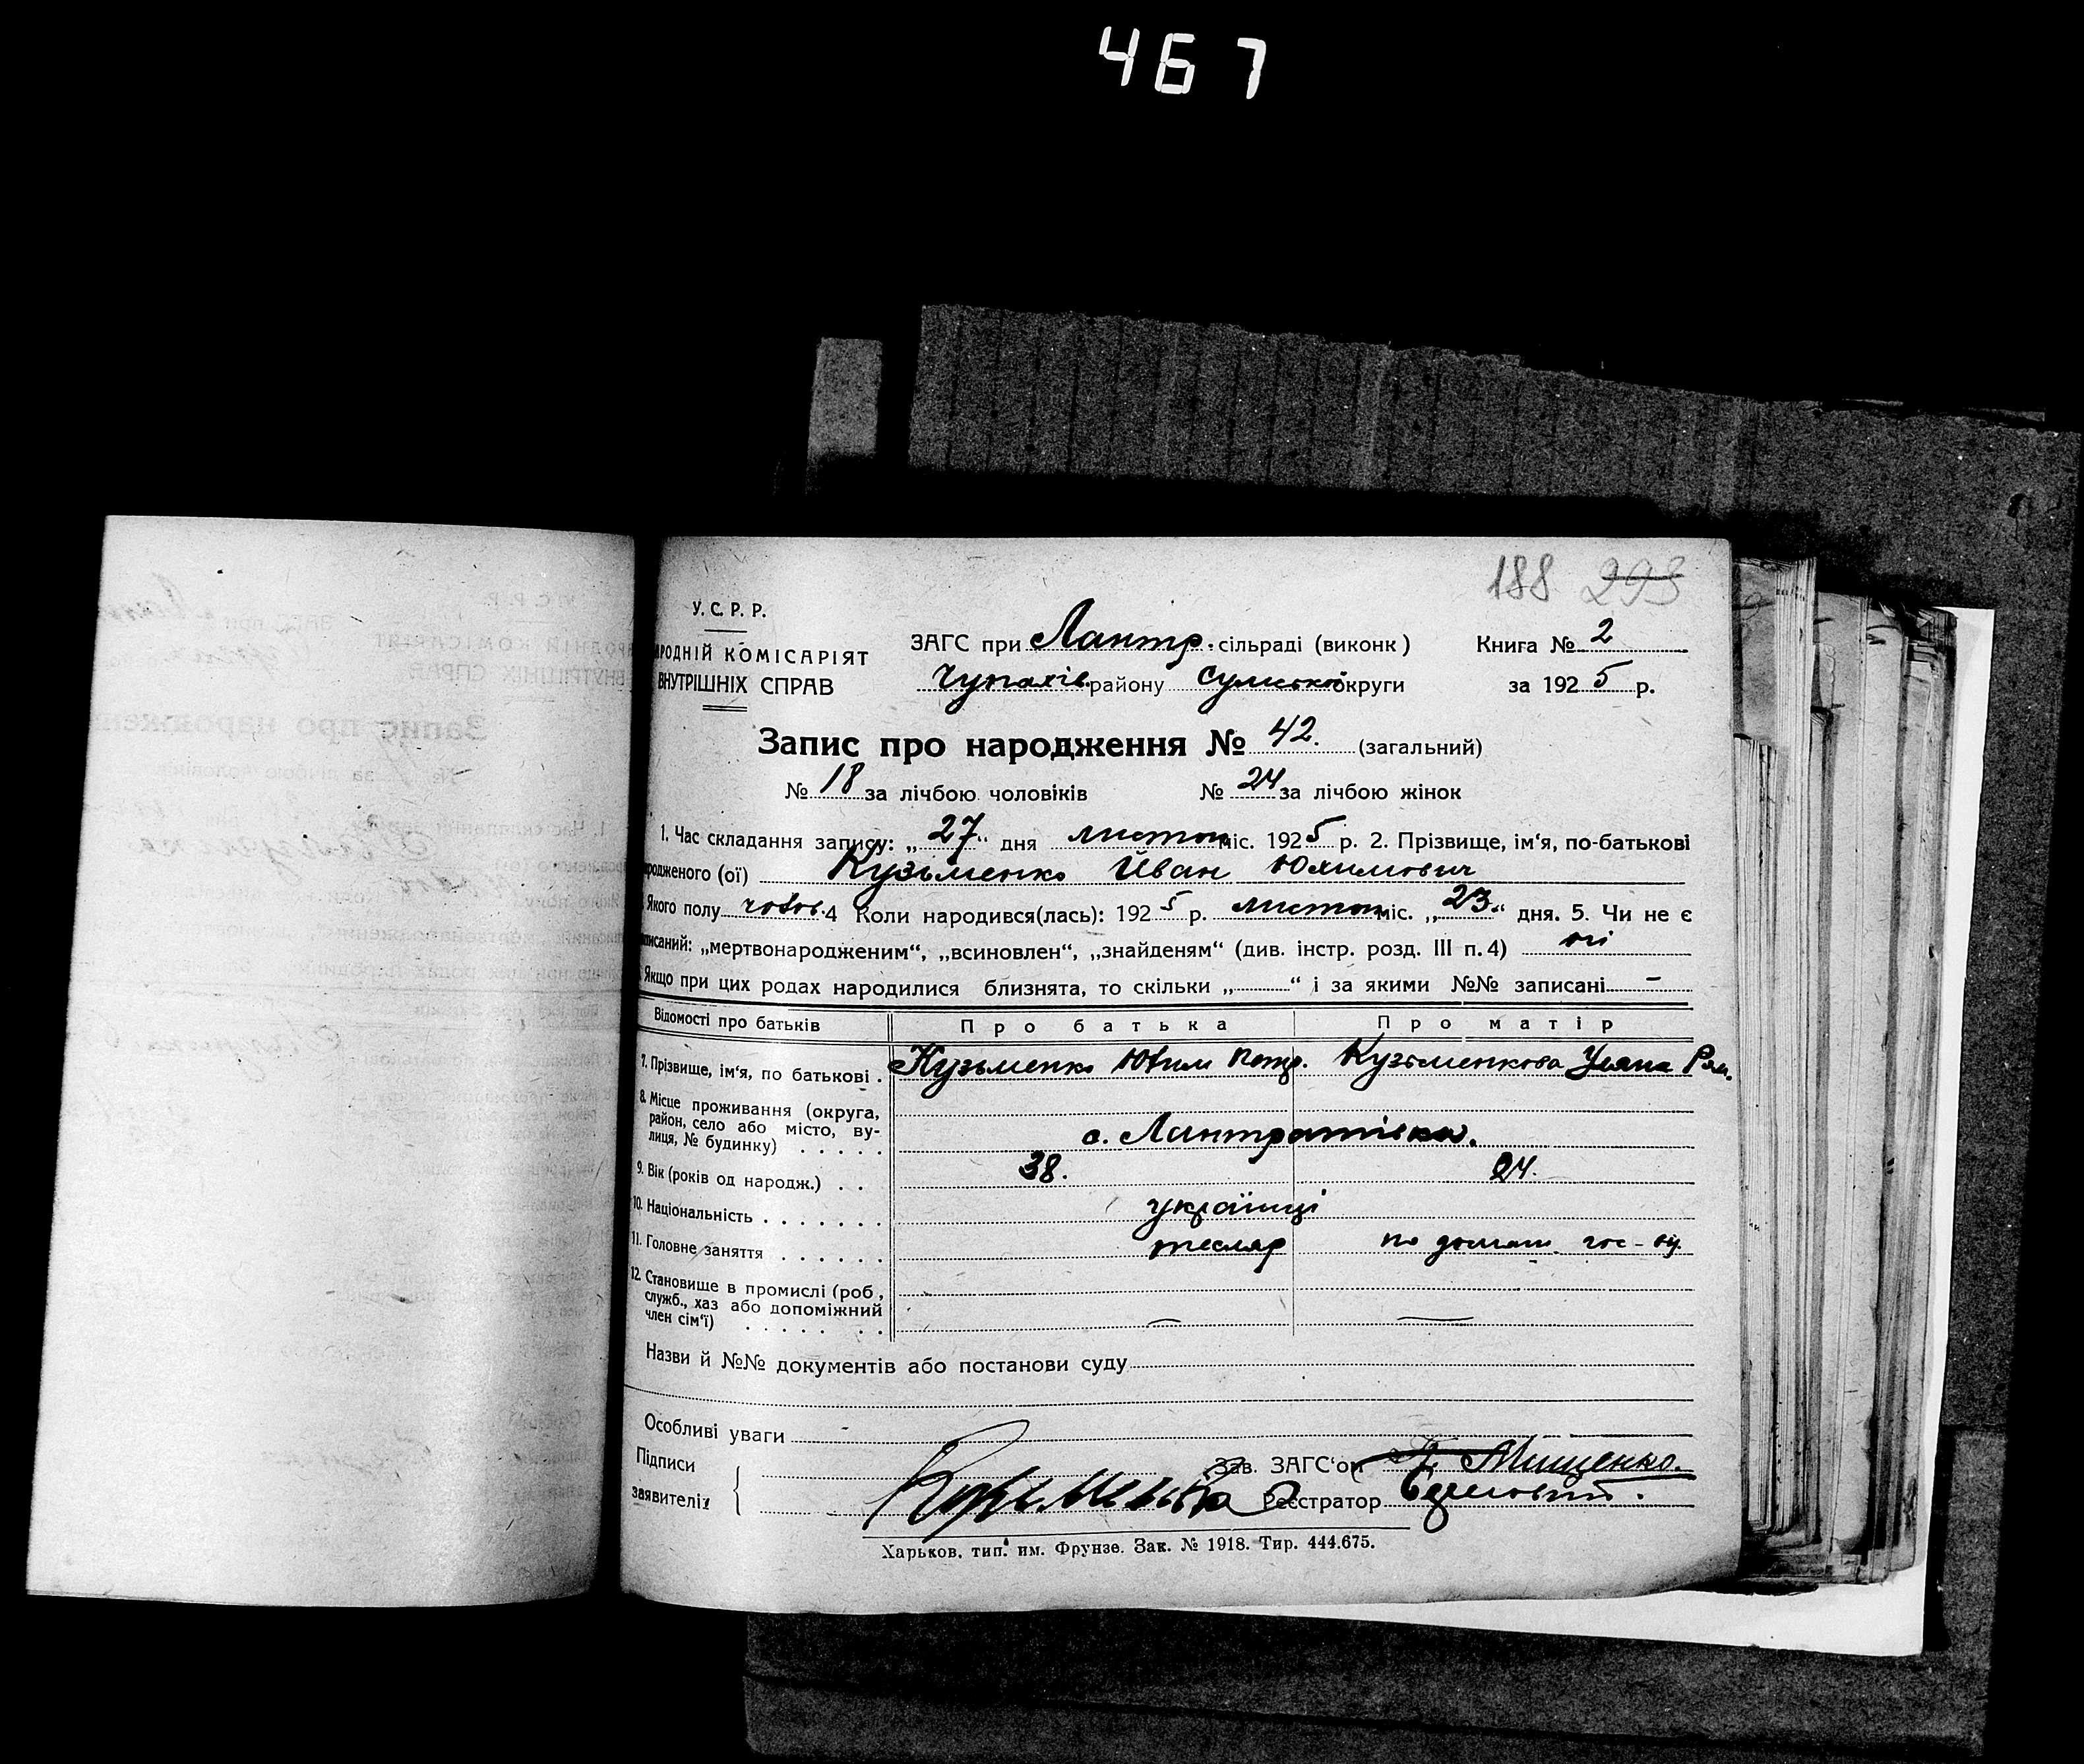 467
188 293
У.С.Р.Р.
РОДНІЙ КОМІСАРІЯТ
ВНУТРІШНІХ СПРАВ
ЗАГС при Лантр. сільраді (виконк)
Книга № 2
Чупахів. району Сумської округи
за 1925 р.
Запис про народження № 42. (загальний)
№ 18 за лічбою чоловіків № 24 за лічбою жінок
1. Час складання запису: „27“ дня листоп міс. 1925 р. 2. Прізвище, ім‘я, по-батькові
родженого (ої) Кузьменко Йван Юхимович
Якого полу чолов. 4 Коли народився(лась): 1925 р. листоп міс. „23“ дня. 5. Чи не є
писаний: „мертвонародженим“, „всиновлен“, „знайденям“ (див. інстр. розд. III п. 4) ні
Якщо при цих родах народилися близнята, то скільки „ “ і за якими №№ записані –
Відомості про батьків Про батька Про матір
7. Прізвище, ім‘я, по батькові . Кузьменко Юхим Петр. Кузьменкова Уляна
8. Місце проживання (округа,
район, село або місто, ву-
лиця, № будинку) . . . . . с. Лантратівка.
9. Вік (років од народж.) . . 38. 24.
10. Національність . . . . . . . українці
11. Головне заняття . . . . . . тесляр по домаш. гос-ву.
12. Становище в промислі (роб,
служб., хаз або допоміжний
член сім‘ї) . . . . . . . — —
Назви й №№ документів або постанови суду
Особливі уваги
Підписи
заявителіх
Кузьменко
Зав. ЗАГС‘ом Мищенко.
Реєстратор
Харьков. тип. им. Фрунзе. Зак. № 1918. Тир. 444.675.